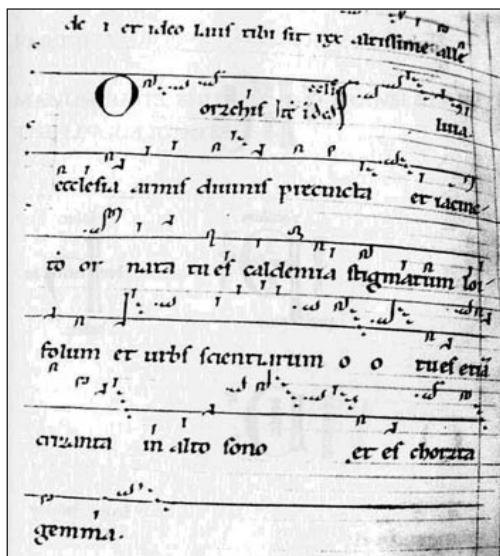 de i et ideo laus tibi sit rex altissime alle
O orzchis luia
ecclesia armis divinis precincta et iacinc
to or nata tu es caldemia stigmatum loi
folum et urbs scientiarum o o tu es etiā
crizanta in alto sono et es chorzta
gemma.